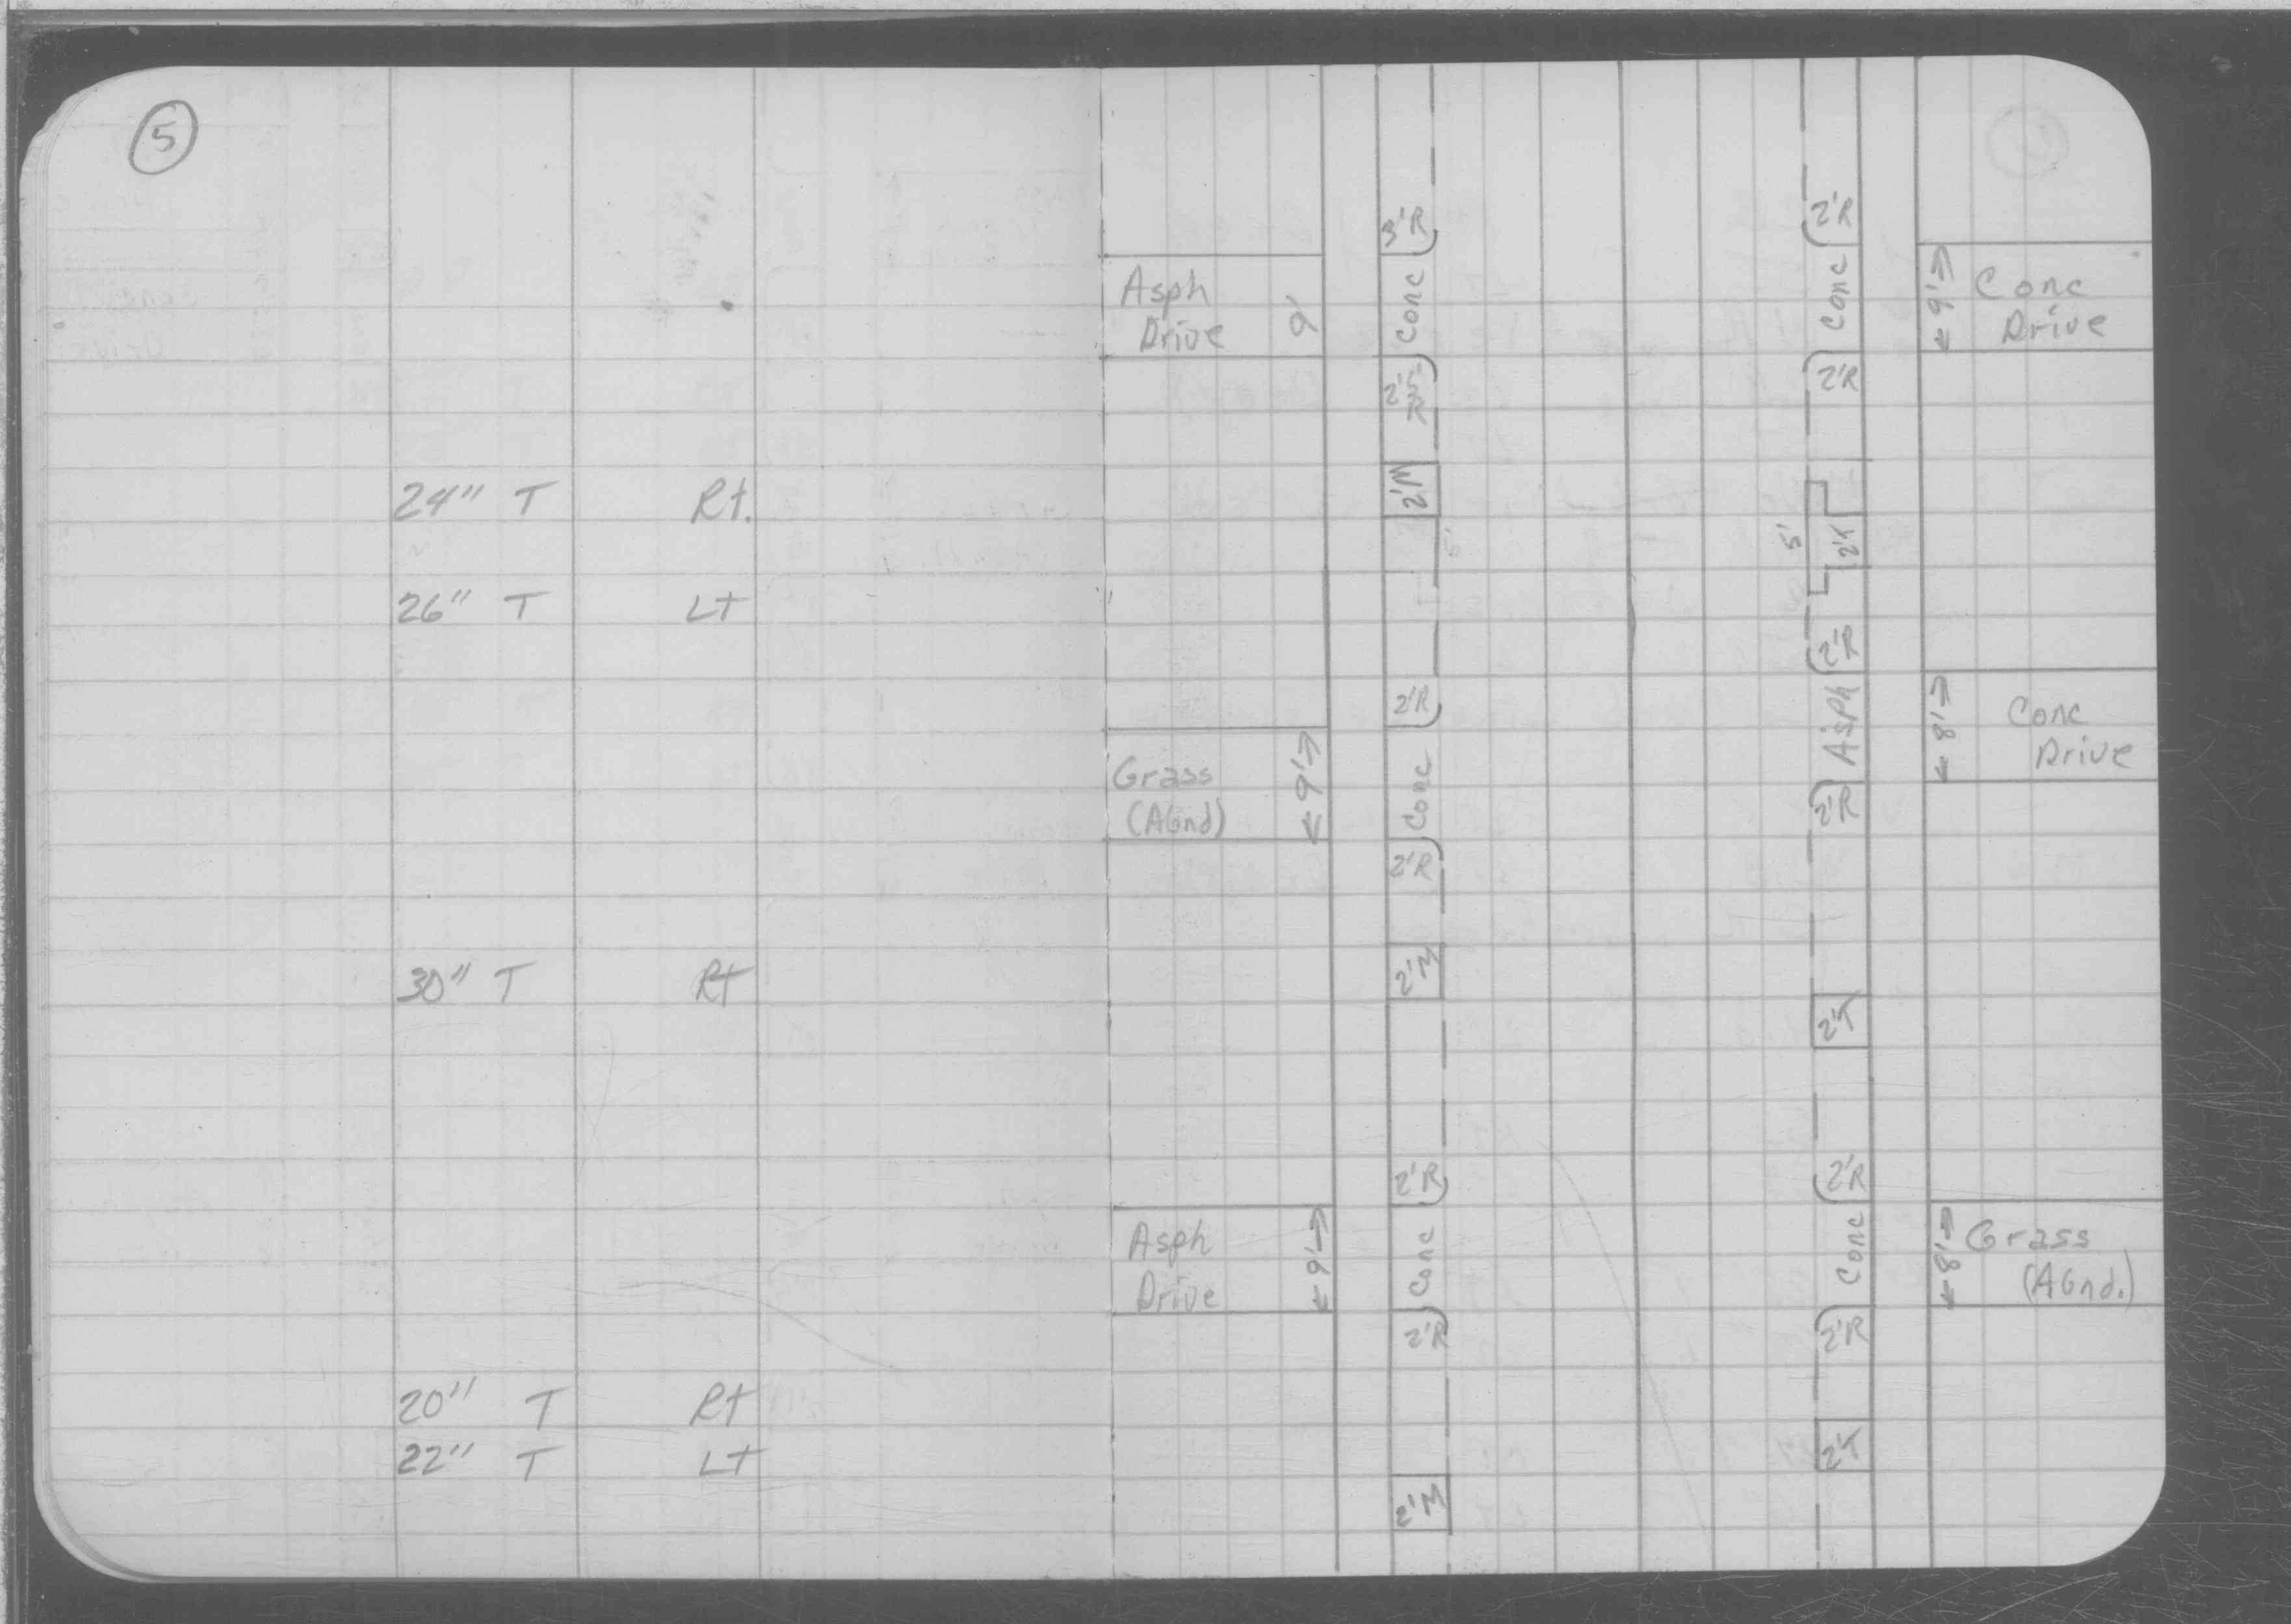 5
24" T Rt.
26" T Lt
30" T Rt
20" T Rt
22" T Lt
3'R
2'R
Asph
Drive
9'
Conc
Conc
9'
Conc
Drive
2'R
2'M
5'
2'T
2'R
2'R
Asph
8'
Conc
Drive
Grass
(AGnd)
9'
Conc
2'R
2'R
2'M
2'T
2'R
2'R
Asph
Drive
9'
Conc
Conc
8'
Grass
(AGnd.)
2'R
2'R
2'T
2'M